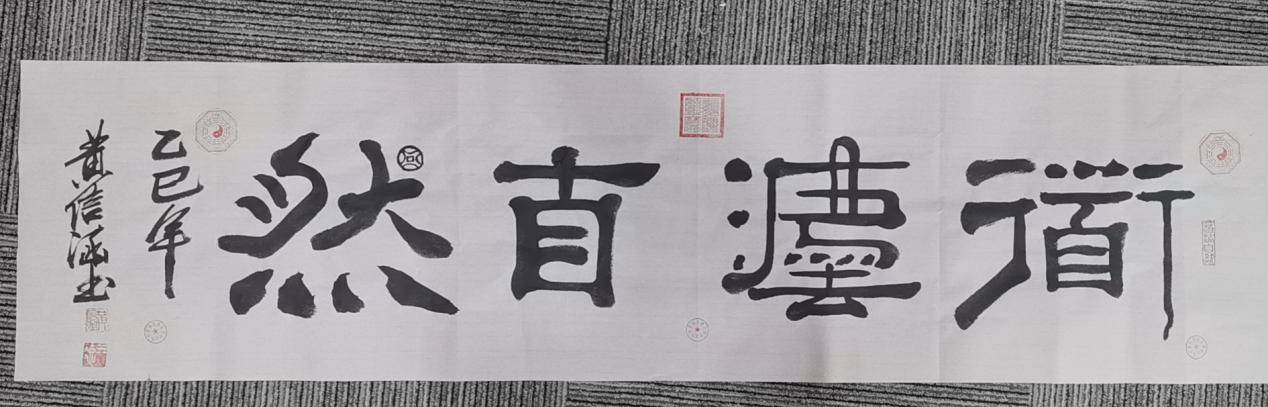 衜灋自然
乙巳年
黄信书